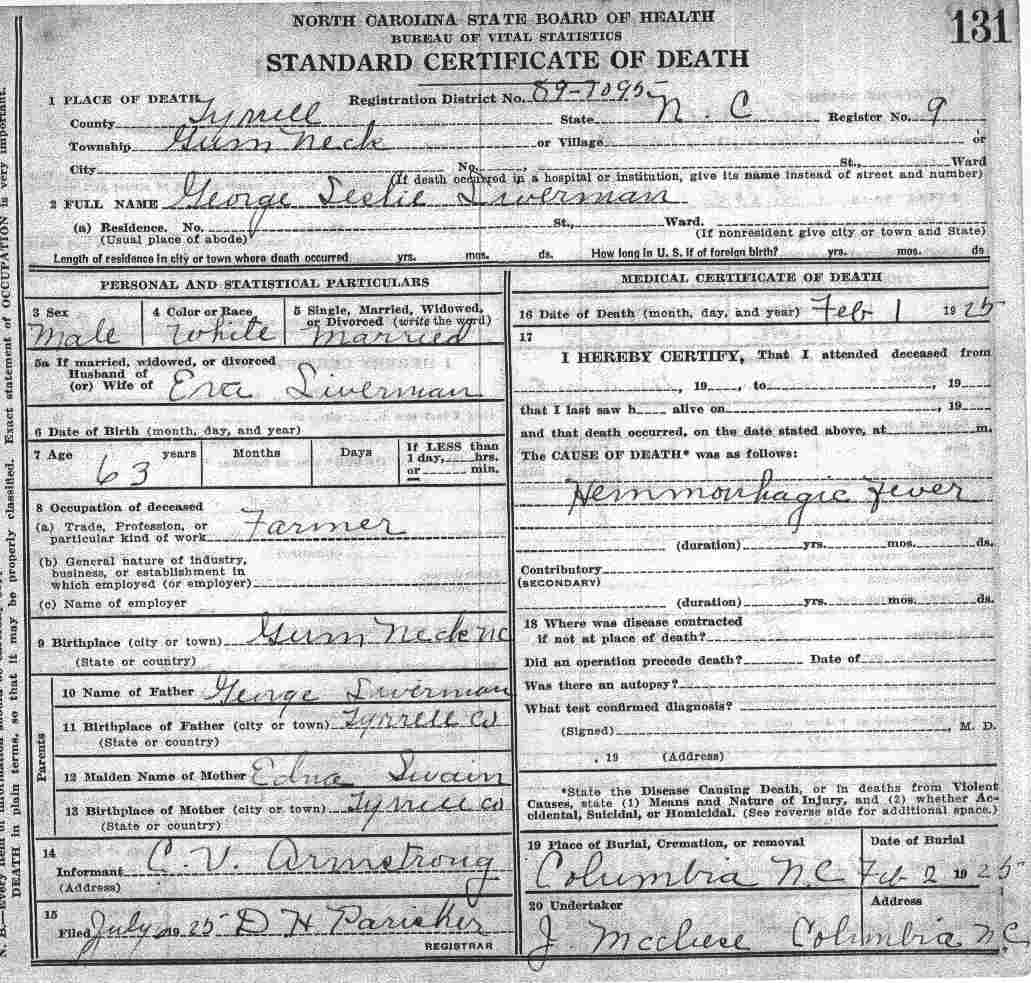 NORTH CAROLINA STATE BOARD OF HEALTH
131
BUREAU OF VITAL STATISTICS
STANDARD CERTIFICATE OF DEATH
1 PLACE OF DEATH Registration District No. 89-7095
County Tyrrell State N. C Register No. 9
Township Gum Neck or Village or
City No. St., Ward
(If death occurred in a hospital or institution, give its name instead of street and number)
2 FULL NAME George Leslie Liverman
(a) Residence. No. St., Ward.
(Usual place of abode) (If nonresident give city or town and State)
Length of residence in city or town where death occurred yrs. mos. ds. How long in U. S. if of foreign birth? yrs. mos. ds
PERSONAL AND STATISTICAL PARTICULARS
3 Sex 4 Color or Race 5 Single, Married, Widowed,
or Divorced (write the word)
Male White Married
5a If married, widowed, or divorced
Husband of
(or) Wife of Eva Liverman
6 Date of Birth (month, day, and year)
7 Age years Months Days If LESS than
1 day, hrs.
or min.
63
8 Occupation of deceased
(a) Trade, Profession, or
particular kind of work Farmer
(b) General nature of industry,
business, or establishment in
which employed (or employer)
(c) Name of employer
9 Birthplace (city or town) Gum Neck NC
(State or country)
Parents
10 Name of Father George Liverman
11 Birthplace of Father (city or town) Tyrrell Co
(State or country)
12 Maiden Name of Mother Edna Swain
13 Birthplace of Mother (city or town) Tyrrell Co
(State or country)
14
Informant C. V. Armstrong
(Address)
15
Filed July 1925 D H
REGISTRAR
MEDICAL CERTIFICATE OF DEATH
16 Date of Death (month, day, and year) Feb 1 1925
17
I HEREBY CERTIFY, That I attended deceased from
, 19 , to , 19
that I last saw h alive on , 19
and that death occurred, on the date stated above, at m.
The CAUSE OF DEATH* was as follows:
Hemmorrhagic Fever
(duration) yrs. mos. ds.
Contributory
(SECONDARY)
(duration) yrs. mos. ds.
18 Where was disease contracted
if not at place of death?
Did an operation precede death? Date of
Was there an autopsy?
What test confirmed diagnosis?
(Signed) , M. D.
, 19 (Address)
*State the Disease Causing Death, or in deaths from Violent
Causes, state (1) Means and Nature of Injury, and (2) whether Ac-
cidental, Suicidal, or Homicidal. (See reverse side for additional space.)
19 Place of Burial, Cremation, or removal Date of Burial
Columbia N.C Feb 2 1925
20 Undertaker Address
J. Columbia N.C.
DEATH in plain terms, so that it may be properly classified. Exact statement of OCCUPATION is very important.